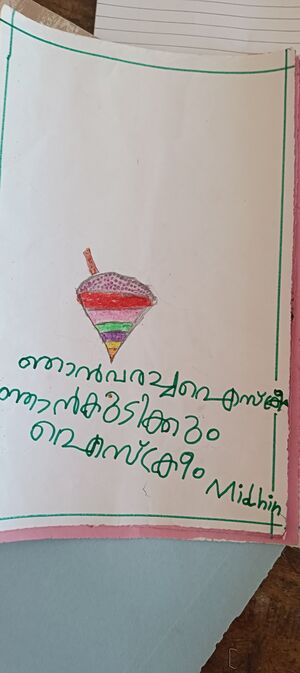 ഞാൻവരച്ചഐസ്ക്രീം
ഞാൻകുടിക്കും
ഐസ്ക്രീം
Midhin